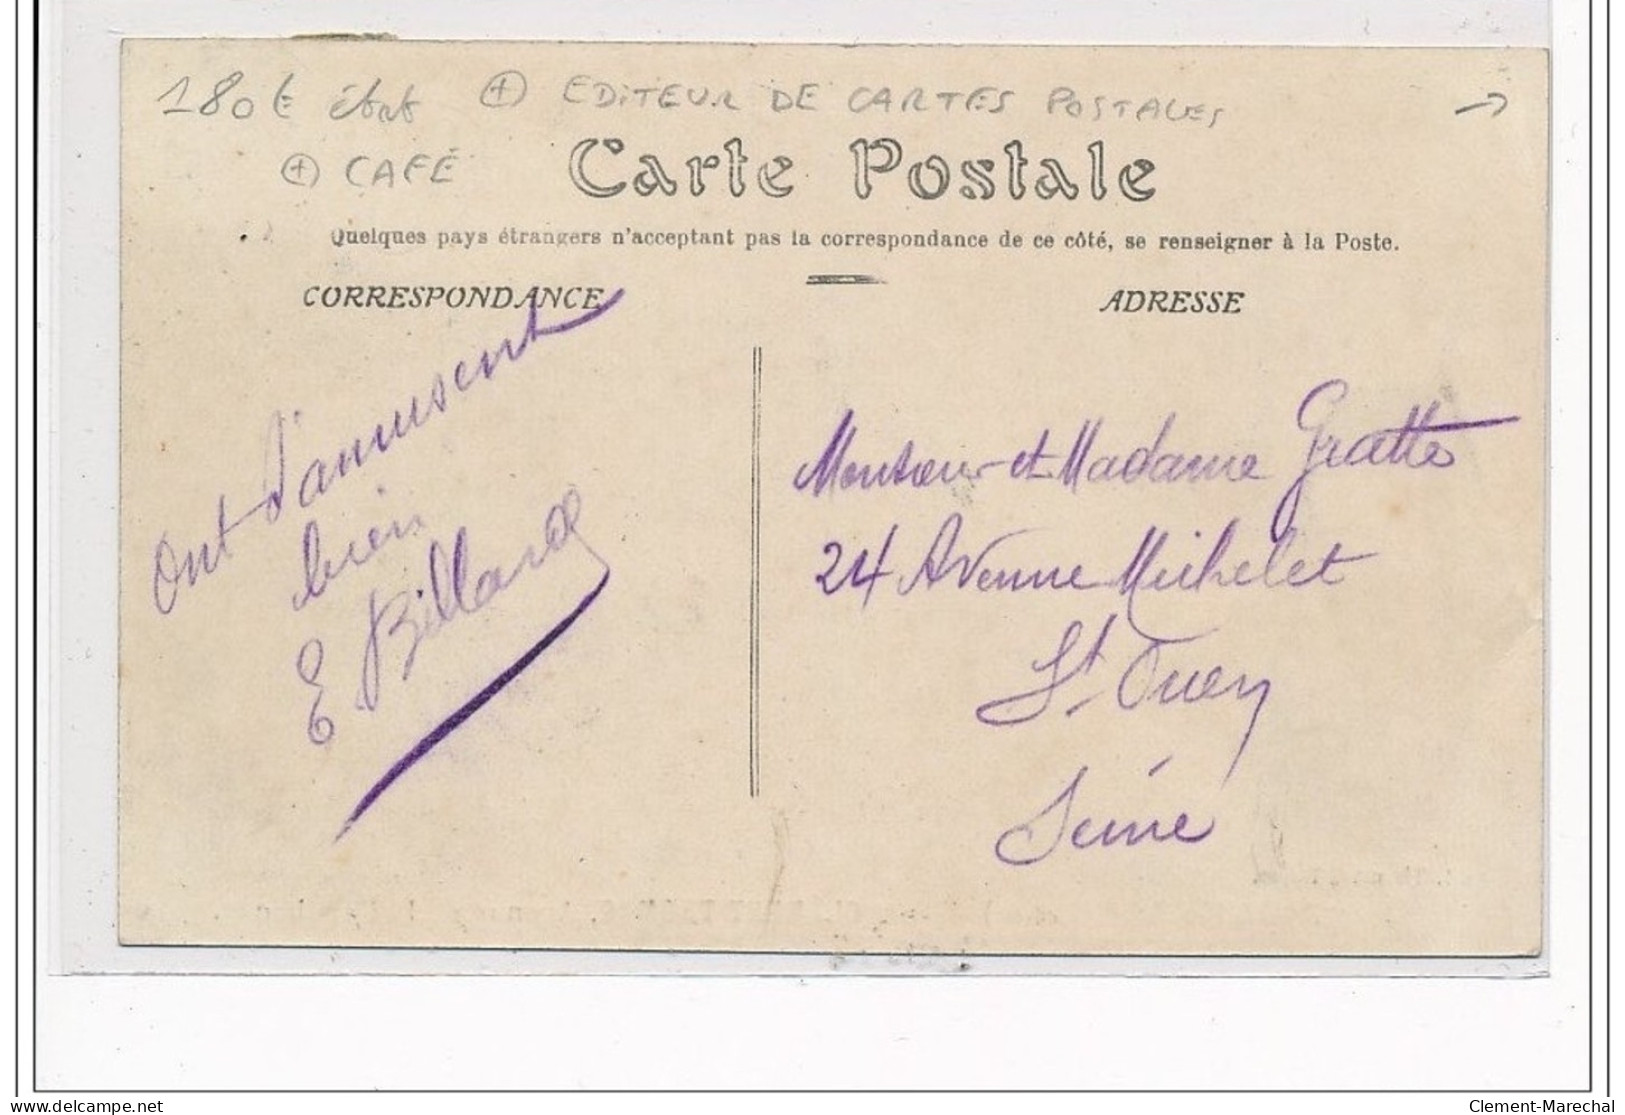 180€ état ⊕ EDITEUR DE CARTES POSTALES →
⊕ CAFÉ
Carte Postale
Quelques pays étrangers n'acceptant pas la correspondance de ce côté, se renseigner à la Poste.
CORRESPONDANCE
ADRESSE
Ont s'amusent
bien
E Billard
Monsieur et Madame Gratte
24 Avenue Michelet
St. Ouen
Seine
www.delcampe.net
Clement-Marechal